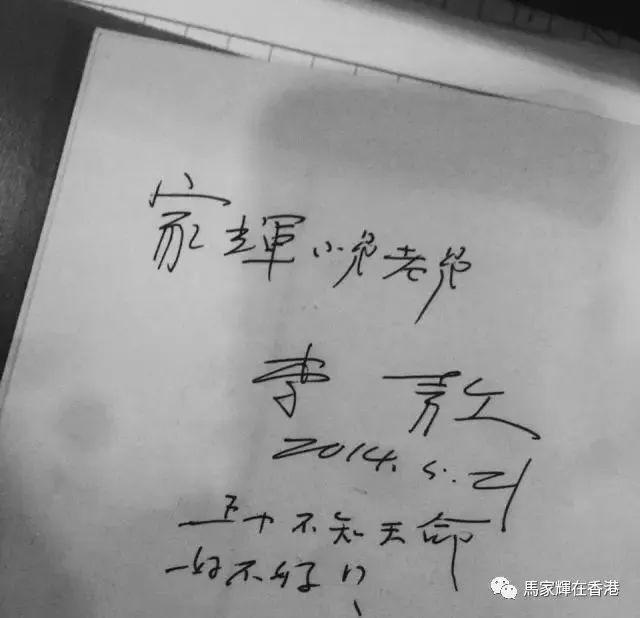 家輝小兄老兄
李 敖
2014.5.21
五十不知天命
一好不好?
馬家輝在香港